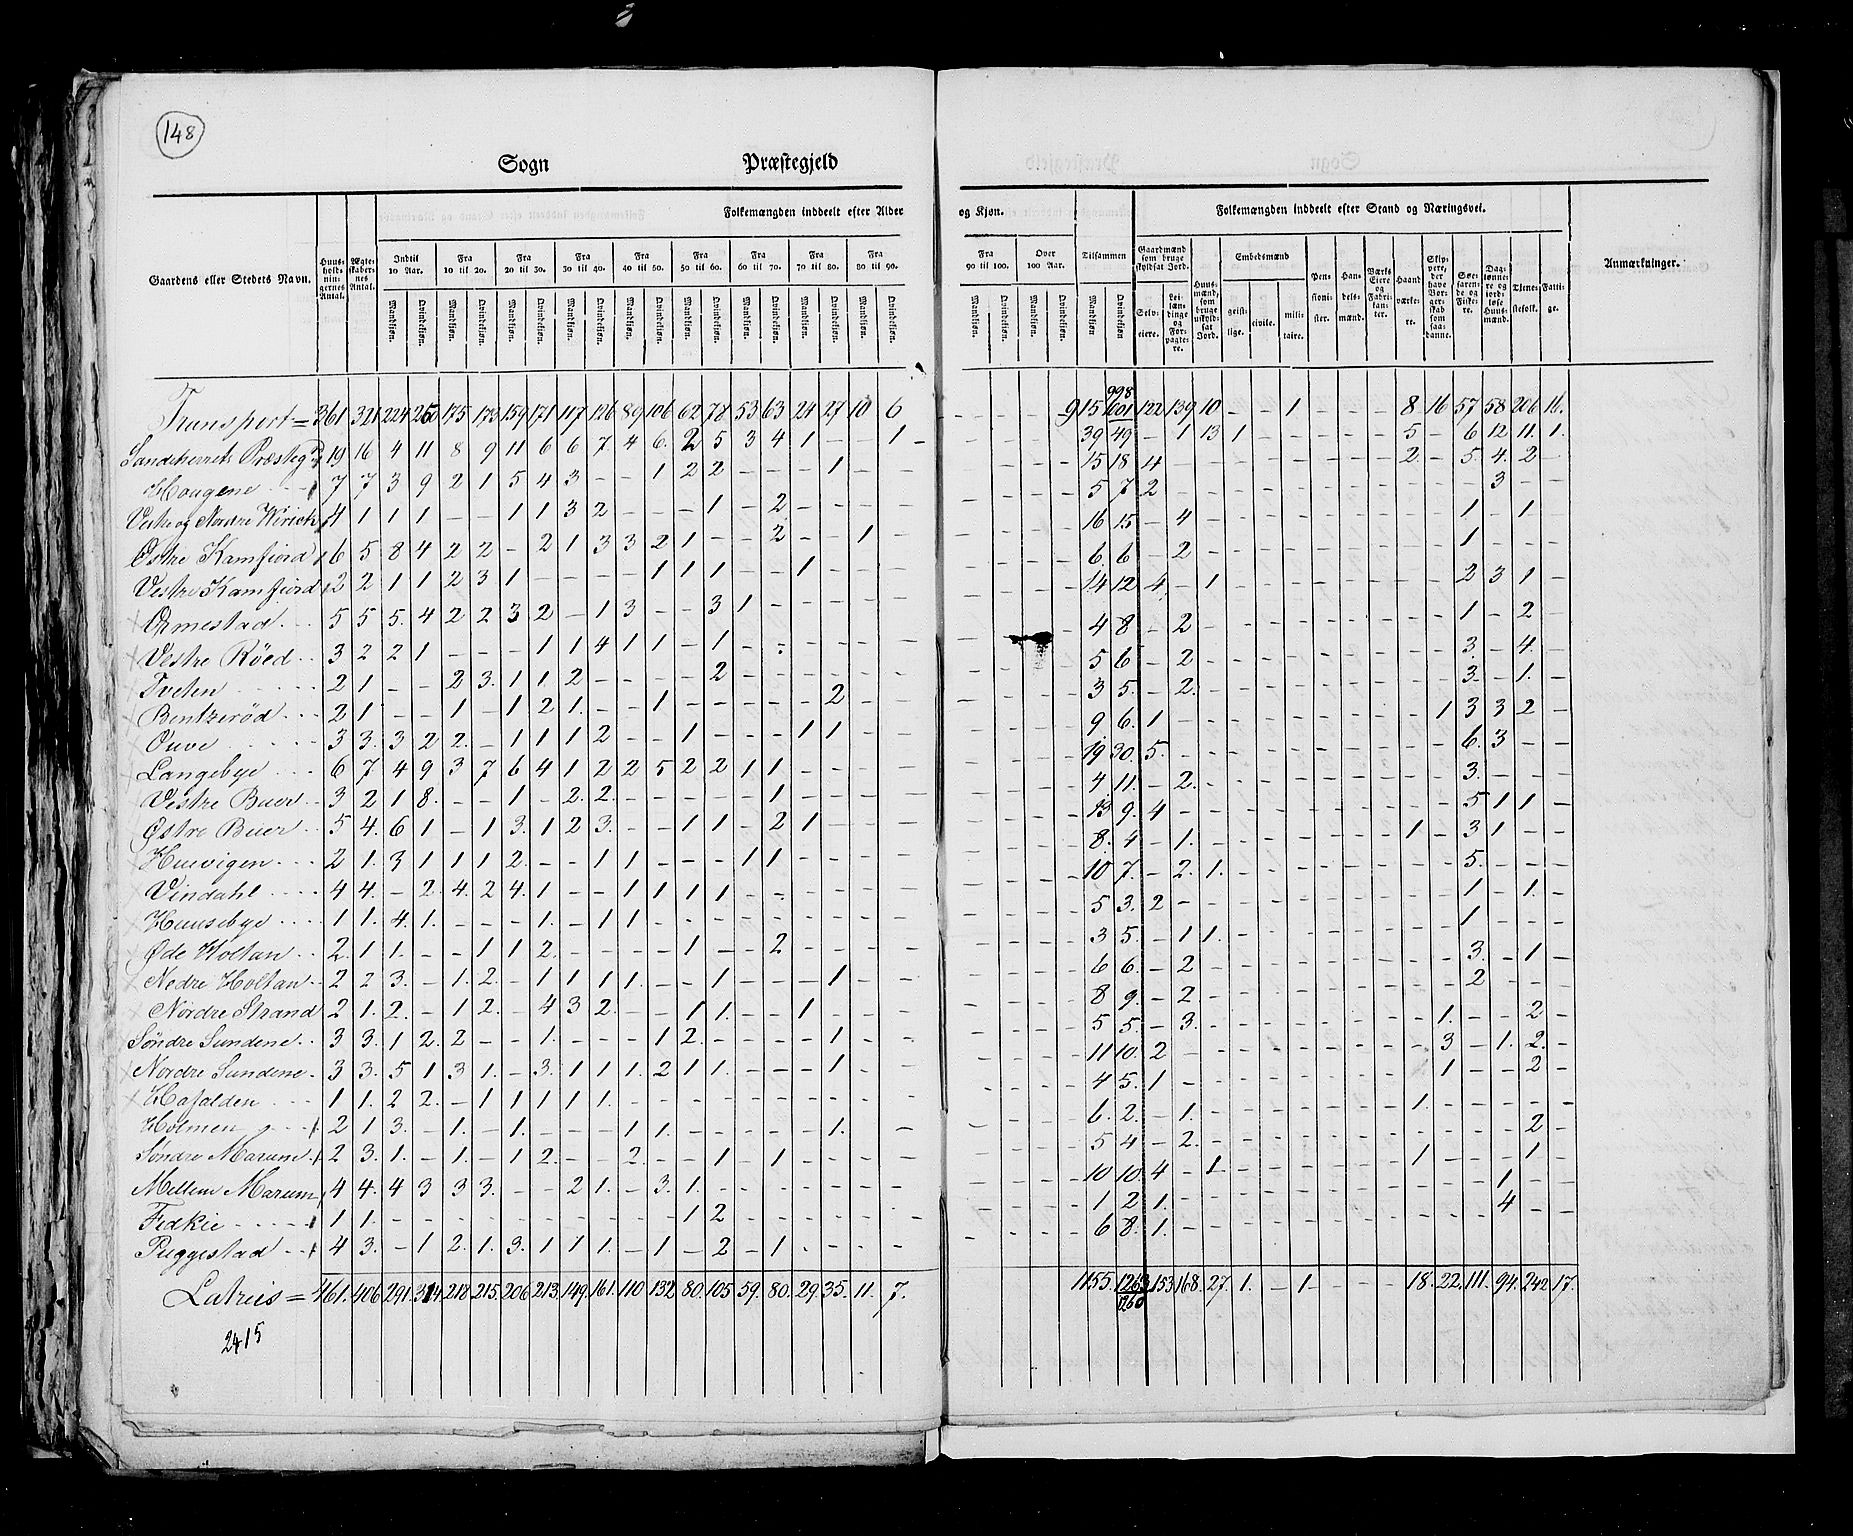 148
Sogn Præstegjeld
Gaardens eller Stedets Navn. Huusholdningernes Antal. Ægteskabernes Antal. Folkemængden inddeelt efter Alder og Kjøn. Tilsammen Folkemængden inddeelt efter Stand og Næringsvei. Anmærkninger.
Indtil 10 Aar. Fra 10 til 20. Fra 20 til 30. Fra 30 til 40. Fra 40 til 50. Fra 50 til 60. Fra 60 til 70. Fra 70 til 80. Fra 80 til 90. Fra 90 til 100. Over 100 Aar. Gaardmænd som bruge skyldsat Jord. Huusmænd, som bruge uskyldsat Jord. Embedsmænd Pensionister. Handelsmænd. Værks Eiere og Fabrikanter. Haandværkere. Skippere, der have Borgerskab som saadanne. Søefarende og Fiskere. Daglønnere og jordløse Huusmænd. Tjenestefolk. Fattige.
Mandkjøn. Qvindekjøn. Selveiere. Leilændinge og Forpagtere. geistlige. civile. militaire.
998
Transport = 361 321 224 250 175 173 159 171 117 126 89 106 62 78 53 63 24 27 10 6 - - - - 915 1001 122 139 10 - - 1 - - - 8 16 57 58 206 16.
Sandeherrets Præsteg 19 16 4 11 8 9 11 6 6 7 4 6. 2 5 3 4 1 - - 1 - 39 49 - 1 13 1 - - - - - 5 - 6 12 11. 1.
Hougene 7 7 3 9 2 1 5 4 3 - - 1 2 2 - - - 1 - - 15 18 4 - - - - - - - - 2 - 5. 4. 2 -
Vestre og Nordre Virich 4 1 1 1 - - 1 1 3 2 - - - 1 - 2 5 7 2 3
Østre Kamfjord 6 5 8 4 2 2 - 2 1 3 3 2 1 - - 2 - - 1 - 16 15 - 4 1 - 1 -
Vestre Kamfjord 2 2 1 1 2 3 1 - - - - 1 1 1 - - 1 - - - 6 6 - 2 1
Ormestad 5 5 5. 4 2 2 3 2 - 1 3 - - 3 1 - - - - - 14 12 4 - 1 2 3 1 -
Vestre Röed 3 2 2 1 - - - 1 1 4 1 1 - 1 4 8 - 2 1 - 2 -
Tveten 2 1 - - 2 3. 1 1. 2 - - - - 2 5 6 - 2 3. - 4. -
Bentzeröd 2 1 - - 1 - 1 2 1. - - 1 - - - - - 2 3 5. - 2. 3. - 1. -
Ouve 3 3. 3 2 2. - 1 1 1 2 - - 1 - - - 1 1 - - 9 6. 1 1 3 3 2 -
Langebye 6 7 4 9 3 7 6 4 1 2 2 5 2 2 1 1 - - - - 19 30. 5. 6. 3 - -
Vestre Buer 3 2 1 8. - - 1 - 2. 2. - - - - - 1 - - - - 4 11. - 2. 3. - - -
Østre Buer 5 4. 6 1 - 1 3. 1 2 3. - - 1 1 - 2 1 - - - 13 9. 4 5 1 1 -
Huuvigen 2 1. 3 1 1 1 2. - - 1 1 - - - 1 1 - - - - 8. 4 - 1. 1 - 3 1 - -
Vindahl 4 4. - 2. 4. 2 4. 1 - - 1 1 1 1 10 7. - 2. 1. 5. - - -
Huusebye 1 1. 4 1. - - - 1. - 1 1 5 3. 2 1 - 1. -
Øde Holtan 2. 1 1. - - 1 1 2. - - - - 1 - - 2 - - - - 3 5. - 1 1. 1 - - -
Nedre Holtan 2 2 3. - 1. 2. - 1 1 1 1. - - 1 - - - 1 - - 6 6. - 2 3. - 1 -
Nordre Strand 2 1. 2. - 1 2. - 4 3 2. - - 1 1. - - 1 - - - 8 9. - 2. 2
Søndre Sundene 3 3. 1 2. 2 - - 1. - - - 1 2. - - - - 1 - - 5 5. - 3. 1. - - 2 -
Nordre Sundene 3 3. 5 1 3 1. - 3. 1 1 1. 2 1 1. - - - 1 - - 11 10. 2 3 - 1. 2. -
Hafalden 1 1. 2 2. - 1 1 1 1 1. 4 5. 1 1 - - 2 -
Holmen 2 1 3. - 1. - 1. - - - 1 1. - - - - - 1. - 6. 2. - 1. 1.
Søndre Marum 2 3. 1. - 1. - 1 2. - - 2. - - 1 - 1 - - - - 5 4 - 2. 2 -
Mellem Marum 4 4. 4 3 3 3. - - 2 1. - 3. 1. 10 10. 4 - 1 1 - - 1 -
Fedkie 1 1. - - - - - - - - - - 1 2 1 2 1. 1
Puggestad 4 3. - 1 2. 1. 3. 1 1 1. - 1 - 2 - 1 - - - - 6 8. 1. 4
Latus = 461. 406 291. 314 218. 215. 206 213. 149. 161. 110 132 80. 105 59. 80. 29. 35. 11. 7. 1155. 1263 153 168. 27. 1. - 1. - - - 18. 22. 111. 94. 242 17.
1260
2415